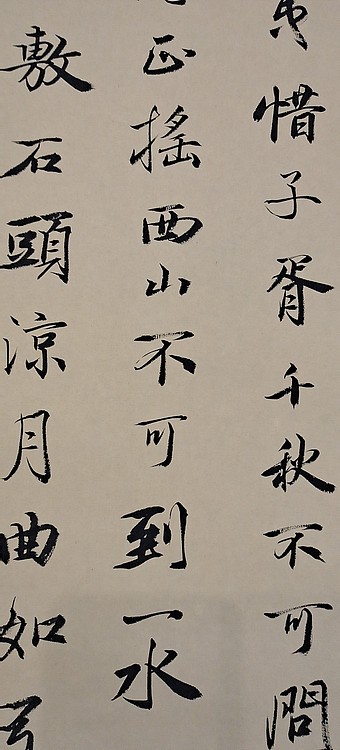 惜子胥千秋不可問
正搖西山不可到一水
敷石頭涼月曲如